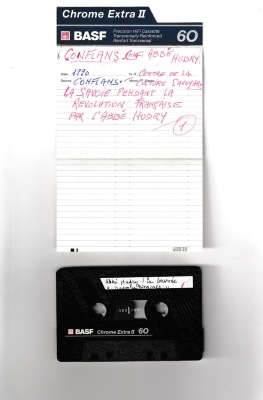 Chrome Extra II
BASF
Precision HiFi Cassette
Transversally Reinforced
Renfort Transversal
60
CONFLANS. CONF. ABBÉ HUDRY.
Date 1990
CENTRE DE LA
Source CONFLANS. CULTURE SAVOYARDE
LA SAVOIE PENDANT LA
RÉVOLUTION FRANÇAISE
PAR L'ABBÉ HUDRY
1
Abbé Hudry : La Savoie
BASF Chrome Extra II 60